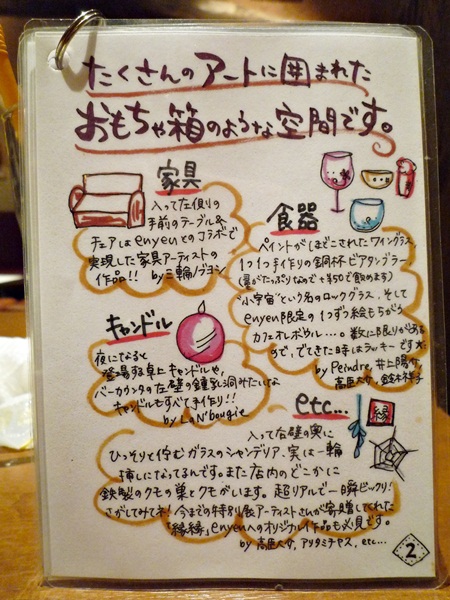 たくさんのアートに囲まれた
おもちゃ箱のような空間です。
家具
入って左側の
手前のテーブル&
チェアはenyenとのコラボで
実現した家具アーティストの
作品!! by 三輪ノブヨシ
食器
ペイントがほどこされたワイングラス、
1つ1つ手作りの銅杯ビアタンブラー
(量がたっぷりなので+¥50で飲めます)
"小宇宙"という名のロックグラス、そして
enyen限定の1つずつ絵もちがう
カフェオレボウル…。数に限りがある
ので、でてきた時はラッキーですね
by Peindre, 井上陽介,
キャンドル
夜になると
登場する卓上キャンドルや、
バーカウンタの左壁の鍾乳洞みたいな
キャンドルもすべて手作り!!
by La N' bougie
etc...
縁
入って左壁の奥に
ひっそりと佇むガラスのシャンデリア、実は一輪
挿しになってるんです。また店内のどこかに
鉄製のクモの巣とクモがいます。超リアルで一瞬ビックリ!
さがしてみてネ! 今までの特別飯アーティストさんが寄贈してくれた
「縁縁」enyenへのオリジナル作品も必見です。
アリタミチヤス, etc...
2